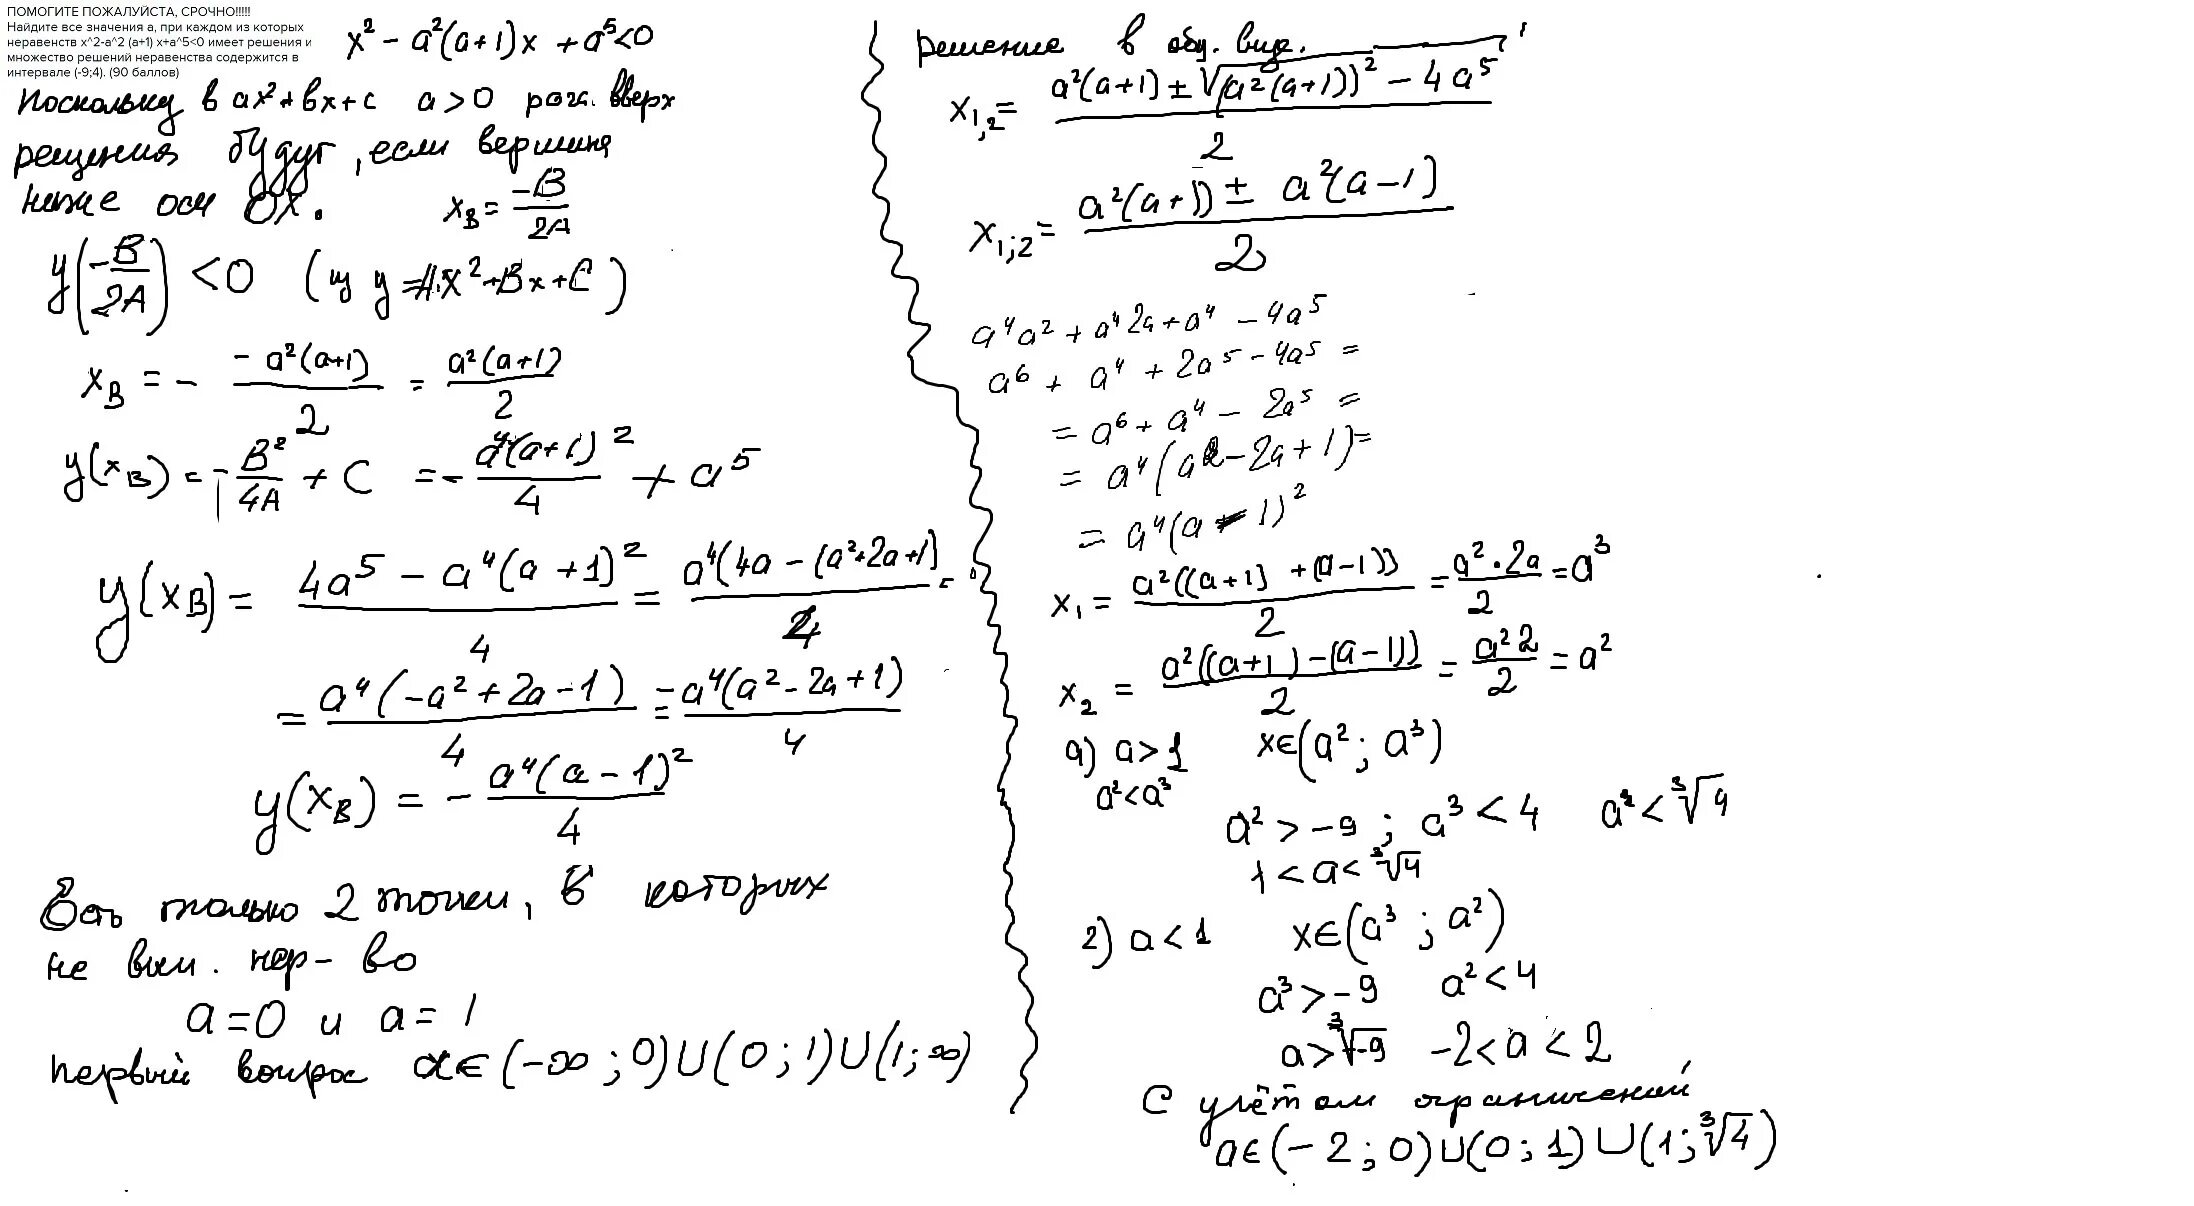 ПОМОГИТЕ ПОЖАЛУЙСТА, СРОЧНО!!!!!
Найдите все значения а, при каждом из которых
неравенств x^2-a^2 (a+1) x+a^5<0 имеет решения и
множество решений неравенства содержится в
интервале (-9;4). (90 баллов)
x² - a²(a+1)x + a⁵<0
поскольку в ax²+bx+c a>0 рога вверх
решения будут, если вершина
ниже оси OX. x_B = -B/2A
y(-B/2A) < 0 (из y=A·x²+Bx+C)
x_B = - -a²(a+1)/2 = a²(a+1)/2
y(x_B) = -B²/4A + C = - a⁴(a+1)²/4 + a⁵
y(x_B) = (4a⁵ - a⁴(a+1)²)/4 = a⁴(4a-(a²+2a+1)/4 =
= a⁴(-a²+2a-1)/4 = -a⁴(a²-2a+1)/4
y(x_B) = - a⁴(a-1)²/4
Есть только 2 точки, в которых
не вып. нер-во
a=0 и a=1
первый вопрос α∈(-∞;0)∪(0;1)∪(1;∞)
решение в общ. виде.
x₁,₂= (a²(a+1) ± √(a²(a+1))² - 4a⁵)/2
x₁;₂= (a²(a+1) ± a²(a-1))/2
a⁴a² + a⁴2a + a⁴ - 4a⁵
a⁶ + a⁴ + 2a⁵ - 4a⁵ =
= a⁶ + a⁴ - 2a⁵ =
= a⁴(a²-2a+1)=
= a⁴(a-1)²
x₁ = a²((a+1)+(a-1))/2 = a²·2a/2 = a³
x₂ = a²((a+1)-(a-1))/2 = a²2/2 = a²
1) a>1 x∈(a²; a³)
a²<a³
a² > -9; a³ < 4 a < ³√4
1 < a < ³√4
2) a<1 x∈(a³; a²)
a³ > -9 a² < 4
a > ³√-9 -2 < a < 2
С учётом ограничений
a∈(-2;0)∪(0;1)∪(1;³√4)